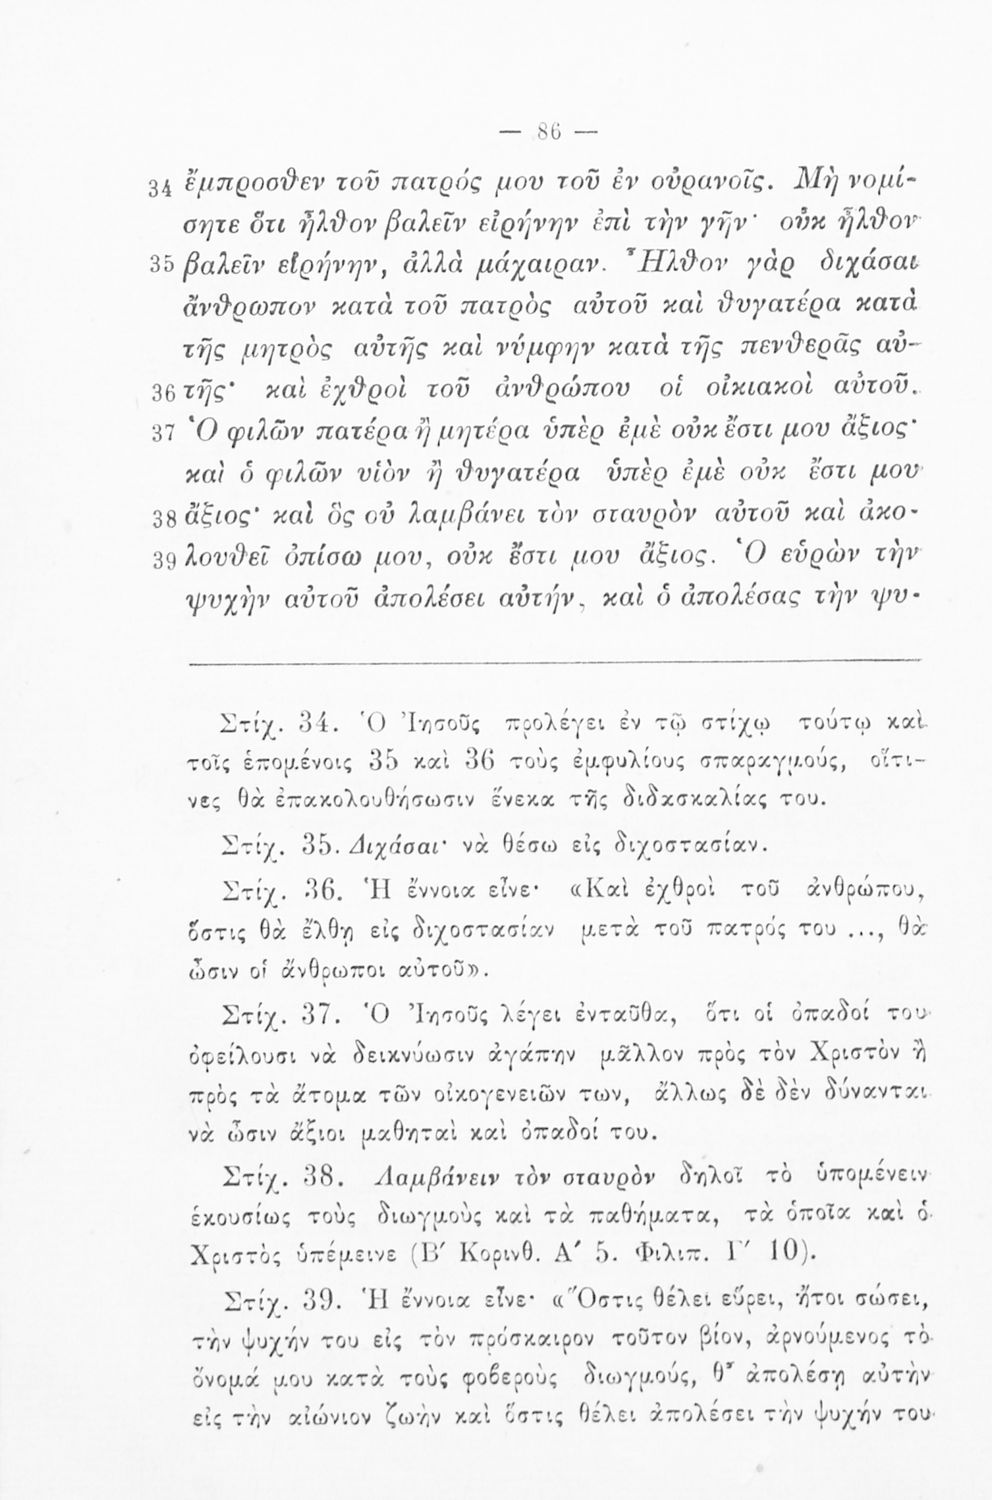 — 86 —
34 ἔμπροσθεν τοῦ πατρός μου τοῦ ἐν οὐρανοῖς. Μὴ νομί-
σητε ὅτι ἦλθον βαλεῖν εἰρήνην ἐπὶ τὴν γῆν· οὐκ ἦλθον
35 βαλεῖν εἰρήνην, ἀλλὰ μάχαιραν. Ἦλθον γὰρ διχάσαι
ἄνθρωπον κατὰ τοῦ πατρὸς αὐτοῦ καὶ θυγατέρα κατὰ
τῆς μητρὸς αὐτῆς καὶ νύμφην κατὰ τῆς πενθερᾶς αὐ-
36 τῆς· καὶ ἐχθροὶ τοῦ ἀνθρώπου οἱ οἰκιακοὶ αὐτοῦ.
37 Ὁ φιλῶν πατέρα ἢ μητέρα ὑπὲρ ἐμὲ οὐκ ἔστι μου ἄξιος·
καὶ ὁ φιλῶν υἱὸν ἢ θυγατέρα ὑπὲρ ἐμὲ οὐκ ἔστι μου
38 ἄξιος· καὶ ὃς οὐ λαμβάνει τὸν σταυρὸν αὐτοῦ καὶ ἀκο-
39 λουθεῖ ὀπίσω μου, οὐκ ἔστι μου ἄξιος. Ὁ εὑρὼν τὴν
ψυχὴν αὐτοῦ ἀπολέσει αὐτήν, καὶ ὁ ἀπολέσας τὴν ψυ-
Στίχ. 34. Ὁ Ἰησοῦς προλέγει ἐν τῷ στίχῳ τούτῳ καὶ
τοῖς ἑπομένοις 35 καὶ 36 τοὺς ἐμφυλίους σπαραγμούς, οἵτι-
νες θὰ ἐπακολουθήσωσιν ἕνεκα τῆς διδασκαλίας του.
Στίχ. 35. Διχάσαι· νὰ θέσω εἰς διχοστασίαν.
Στίχ. 36. Ἡ ἔννοια εἶνε· «Καὶ ἐχθροὶ τοῦ ἀνθρώπου,
ὅστις θὰ ἔλθῃ εἰς διχοστασίαν μετὰ τοῦ πατρός του ..., θὰ
ὦσιν οἱ ἄνθρωποι αὐτοῦ».
Στίχ. 37. Ὁ Ἰησοῦς λέγει ἐνταῦθα, ὅτι οἱ ὀπαδοί του
ὀφείλουσι νὰ δεικνύωσιν ἀγάπην μᾶλλον πρὸς τὸν Χριστὸν ἢ
πρὸς τὰ ἄτομα τῶν οἰκογενειῶν των, ἄλλως δὲ δὲν δύνανται
νὰ ὦσιν ἄξιοι μαθηταὶ καὶ ὀπαδοί του.
Στίχ. 38. Λαμβάνειν τὸν σταυρὸν δηλοῖ τὸ ὑπομένειν
ἑκουσίως τοὺς διωγμοὺς καὶ τὰ παθήματα, τὰ ὁποῖα καὶ ὁ
Χριστὸς ὑπέμεινε (Β′ Κορινθ. Α′ 5. Φιλιπ. Γ′ 10).
Στίχ. 39. Ἡ ἔννοια εἶνε· «Ὅστις θέλει εὕρει, ἤτοι σώσει,
τὴν ψυχήν του εἰς τὸν πρόσκαιρον τοῦτον βίον, ἀρνούμενος τὸ
ὄνομά μου κατὰ τοὺς φοβεροὺς διωγμούς, θ' ἀπολέσῃ αὐτὴν
εἰς τὴν αἰώνιον ζωὴν καὶ ὅστις θέλει ἀπολέσει τὴν ψυχήν του